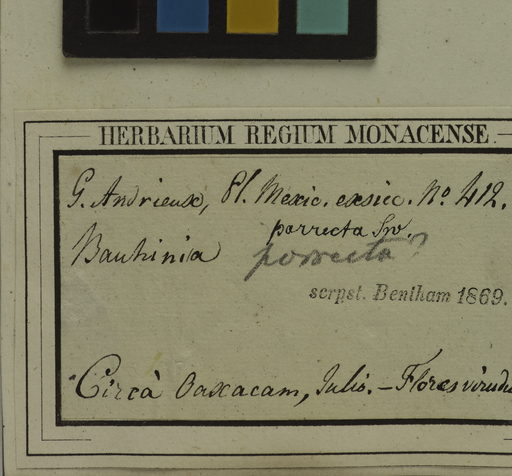 HERBARIUM REGIUM MONACENSE.
G. Andrieux, Pl. Mexic. exsicc. No. 412.
porrecta Sw.
Bauhinia porrecta?
scrpst. Bentham 1869.
Circà Oaxacam, Julio. – Flores